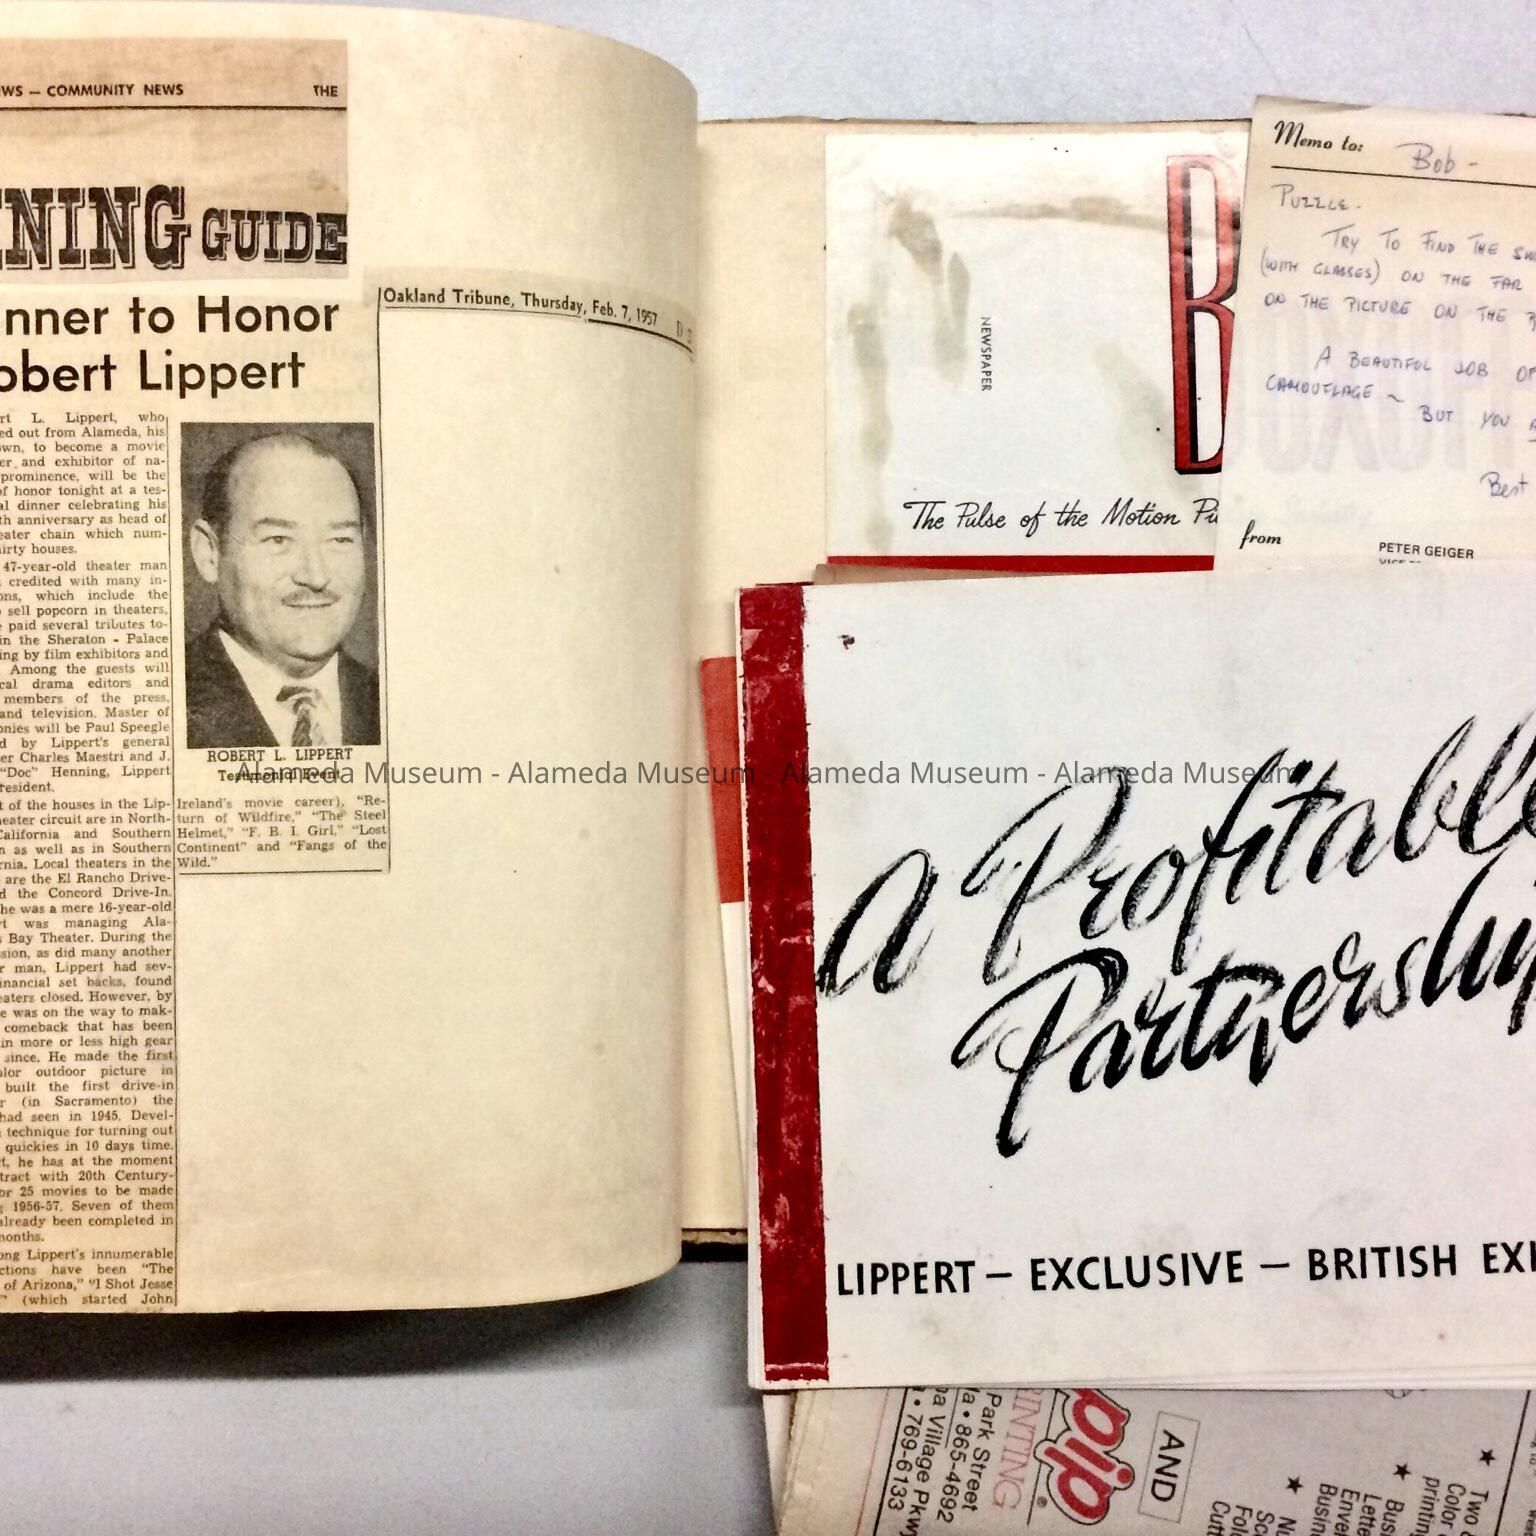 WS — COMMUNITY NEWS THE
NING GUIDE
nner to Honor
obert Lippert
rt L. Lippert, who
ed out from Alameda, his
own, to become a movie
er and exhibitor of na-
prominence, will be the
of honor tonight at a tes-
al dinner celebrating his
th anniversary as head of
eater chain which num-
irty houses.
47-year-old theater man
credited with many in-
ons, which include the
sell popcorn in theaters,
e paid several tributes to-
in the Sheraton - Palace
ing by film exhibitors and
Among the guests will
cal drama editors and
members of the press,
and television. Master of
onies will be Paul Speegle
d by Lippert's general
er Charles Maestri and J.
"Doc" Henning, Lippert
resident.
t of the houses in the Lip-
eater circuit are in North-
California and Southern
n as well as in Southern
rnia. Local theaters in the
are the El Rancho Drive-
d the Concord Drive-In.
he was a mere 16-year-old
rt was managing Ala-
s Bay Theater. During the
sion, as did many another
r man, Lippert had sev-
inancial set backs, found
eaters closed. However, by
e was on the way to mak-
comeback that has been
in more or less high gear
since. He made the first
olor outdoor picture in
built the first drive-in
r (in Sacramento) the
had seen in 1945. Devel-
technique for turning out
quickies in 10 days time.
t, he has at the moment
tract with 20th Century-
or 25 movies to be made
g 1956-57. Seven of them
already been completed in
months.
ong Lippert's innumerable
ctions have been "The
of Arizona," "I Shot Jesse
" (which started John
ROBERT L. LIPPERT
Testimonial Event
Ireland's movie career), "Re-
turn of Wildfire," "The Steel
Helmet," "F. B. I. Girl," "Lost
Continent" and "Fangs of the
Wild."
Oakland Tribune, Thursday, Feb. 7, 1957
NEWSPAPER
B
The Pulse of the Motion Pi
Memo to: Bob -
PUZZLE-
TRY TO FIND THE
(WITH GLASSES) ON THE FAR
ON THE PICTURE ON THE
A BEAUTIFUL JOB OF
CAMOUFLAGE ~
BUT YOU
Best
from
PETER GEIGER
A Profitable
Partnership
LIPPERT — EXCLUSIVE — BRITISH EXI
Alameda Museum - Alameda Museum - Alameda Museum - Alameda Museum
Park Street
la • 865-4692
a Village Pkwy
• 769-6133
RINTING
pip
®
AND
Two
Color
printin
Bus
Lette
Enve
Busin